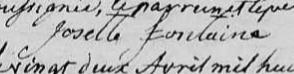 soussignée, le parrain et le pè
Josette Fontaine
le vingt deux Avril mil huit